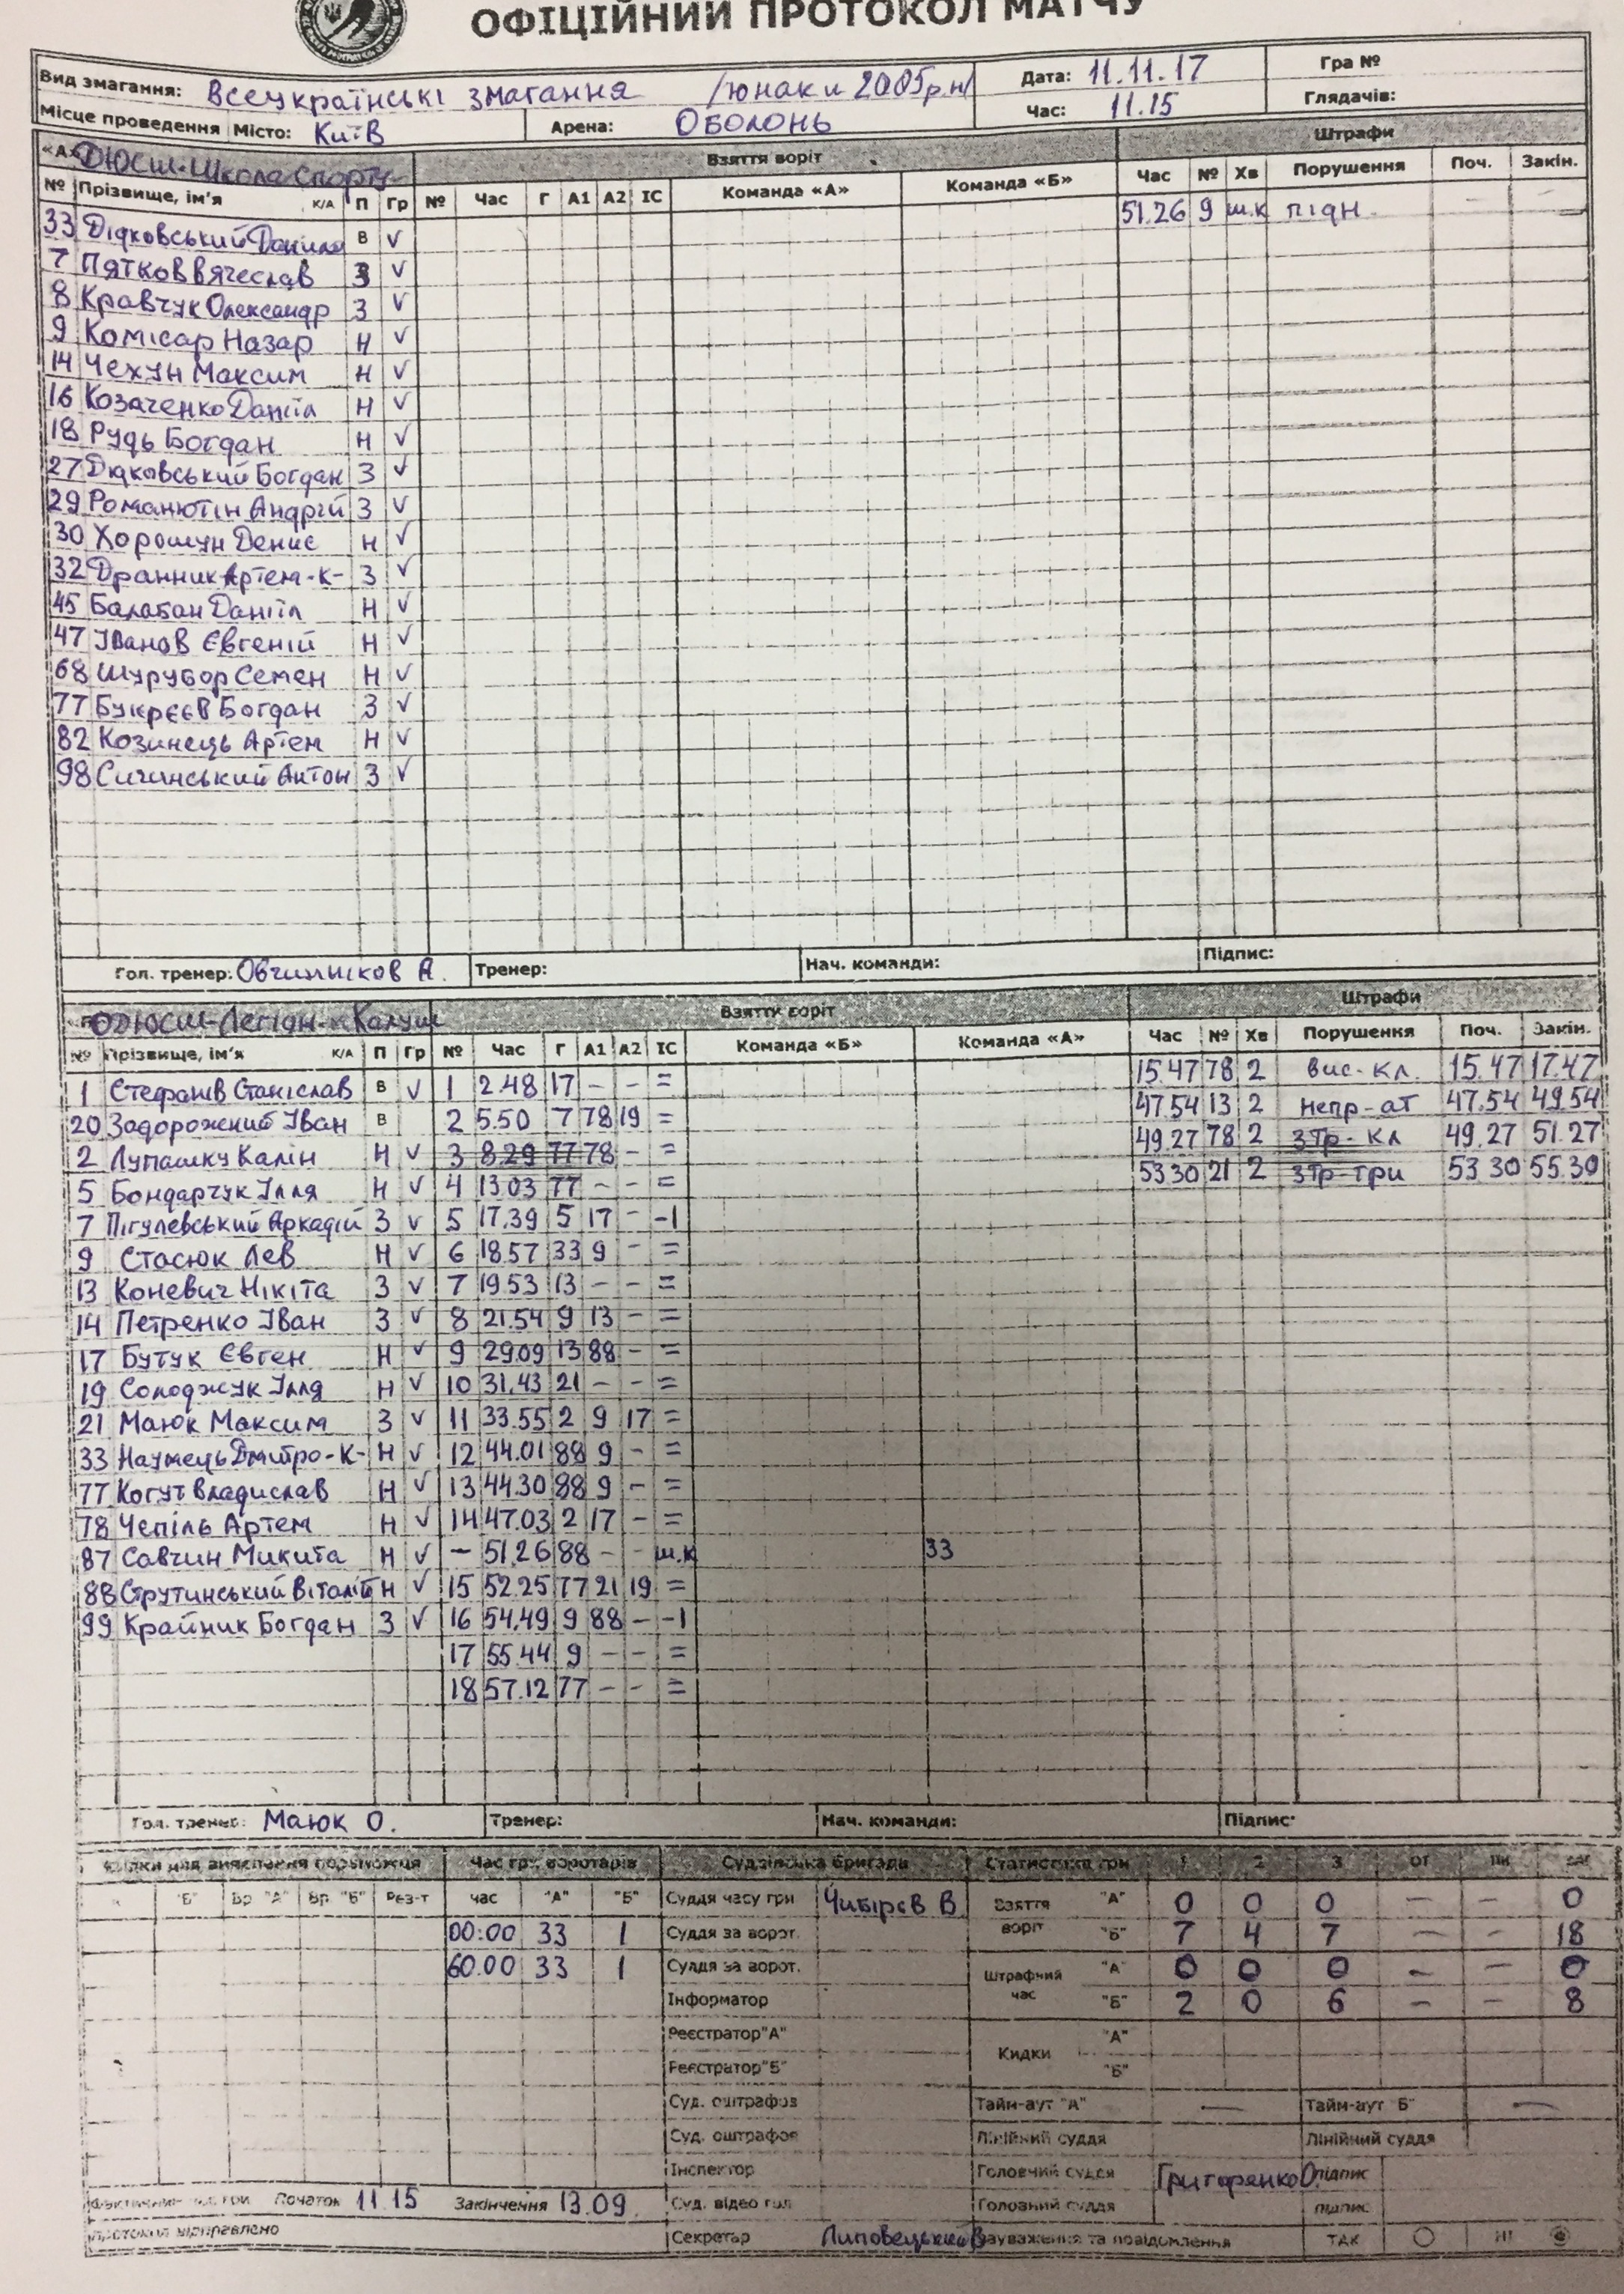 ОФІЦІЙНИЙ ПРОТОКОЛ МАТЧУ
Вид змагання: Всеукраїнські змагання /юнаки 2005р.н/ Дата: 11.11.17 Гра №
Місце проведення Місто: Київ Арена: Оболонь Час: 11.15 Глядачів:
«А» ДЮСШ-Школа Спорту Взяття воріт Штрафи
№ Прізвище, ім'я К/А П Гр № Час Г А1 А2 ІС Команда «А» Команда «Б» Час № Хв Порушення Поч. Закін.
33 Дідковський Данило В V 51.26 9 ш.к підн. - -
7 Пятков Вячеслав З V
8 Кравчук Олександр З V
9 Комісар Назар Н V
14 Чехун Максим Н V
16 Козаченко Данііл Н V
18 Рудь Богдан Н V
27 Дідковський Богдан З V
29 Романютін Андрій З V
30 Хорошун Денис Н V
32 Дранник Артем -К- З V
45 Балабан Данііл Н V
47 Іванов Євгеній Н V
68 Шурубор Семен Н V
77 Букрєєв Богдан З V
82 Козинець Артем Н V
98 Сичинський Антон З V
Гол. тренер: Овчинніков А. Тренер: Нач. команди: Підпис:
ОДЮСШ-Легіон-Калуш Взяття воріт Штрафи
№ Прізвище, ім'я К/А П Гр № Час Г А1 А2 ІС Команда «Б» Команда «А» Час № Хв Порушення Поч. Закін.
1 Стефанів Станіслав В V 1 2.48 17 - - = 15.47 78 2 Вис-кл. 15.47 17.47
20 Задорожний Іван В 2 5.50 7 78 19 = 47.54 13 2 Непр-ат 47.54 49.54
2 Лупашку Калін Н V 3 8.29 77 78 - = 49.27 78 2 Зтр-кл 49.27 51.27
5 Бондарчук Ілля Н V 4 13.03 77 - - = 53.30 21 2 Зтр-три 53.30 55.30
7 Пігулевський Аркадій З V 5 17.39 5 17 - -1
9 Стасюк Лев Н V 6 18.57 33 9 - =
13 Коневич Нікіта З V 7 19.53 13 - - =
14 Петренко Іван З V 8 21.54 9 13 - =
17 Бутук Євген Н V 9 29.09 13 88 - =
19 Солоджук Ілля Н V 10 31.43 21 - - =
21 Маюк Максим З V 11 33.55 2 9 17 =
33 Наумець Дмитро -К- Н V 12 44.01 88 9 - =
77 Когут Владислав Н V 13 44.30 88 9 - =
78 Чепіль Артем Н V 14 47.03 2 17 - =
87 Савчин Микита Н V - 51.26 88 - - ш.к 33
88 Струтинський Віталій Н V 15 52.25 77 21 19 =
99 Крайник Богдан З V 16 54.49 9 88 - -1
17 55.44 9 - - =
18 57.12 77 - - =
Гол. тренер: Маюк О. Тренер: Нач. команди: Підпис:
Кидки для виявлення переможця Час гри воротарів Суддівська бригада Статистика гри 1 2 3 ОТ ПК ЗАГ
"Б" Вр. "А" Вр. "Б" Рез-т час "А" "Б" Суддя часу гри Чибірєв В. Взяття воріт "А" 0 0 0 - - 0
00:00 33 1 Суддя за ворот. "Б" 7 4 7 - - 18
60.00 33 1 Суддя за ворот. Штрафний час "А" 0 0 0 - - 0
Інформатор "Б" 2 0 6 - - 8
Реєстратор"А" Кидки "А"
Реєстратор"Б" "Б"
Суд. оштрафов Тайм-аут "А" - Тайм-аут "Б" -
Суд. оштрафов Лінійний суддя Лінійний суддя
Інспектор Головний суддя Григоренко О. підпис
Фактичний час гри Початок 11.15 Закінчення 13.09 Суд. відео гол Головний суддя підпис
Протокол відправлено Секретар Липовецький В Зауваження та повідомлення ТАК НІ